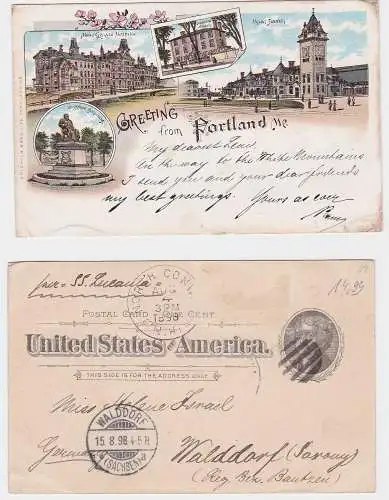 Maine General Hospital
Union Station
GREETING
from Portland Me
My dearest Fean,
On the way to the White Mountains
I send you and your dear friends
my best greetings. Yours as ever
per SS. Lucania
CONN.
3 PM
1898
14.99
POSTAL CARD ONE CENT.
United States of America.
THIS SIDE IS FOR THE ADDRESS ONLY.
Miss Helene Israel
WALDDORF
15.8.98.4-5N
(SACHSEN)
Walddorf (Saxony)
Germany
(Reg. Bez. Bautzen)